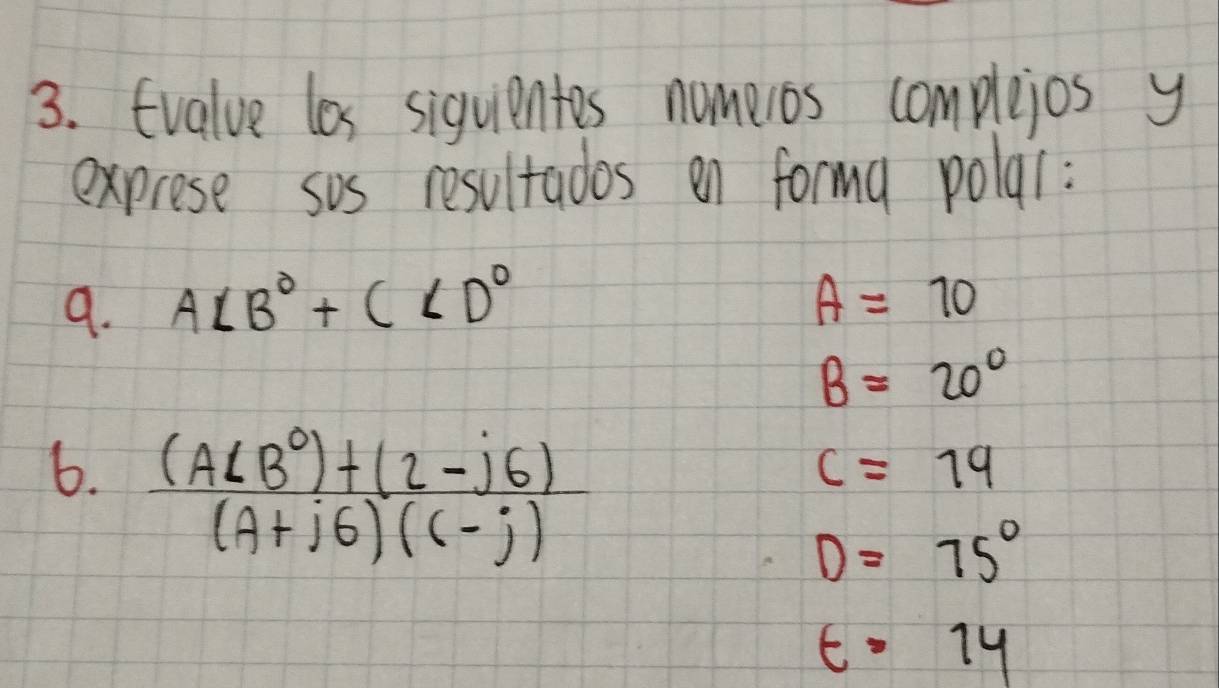 3. Evalue los siguientes numeros complejos y
exprese sus resultados en forma polar:
a. A∠B° + C∠D°
A = 10
B = 20°
b. (A∠B°)+(2-j6)
(A+j6)(c-j)
C = 19
D = 15°
E = 14